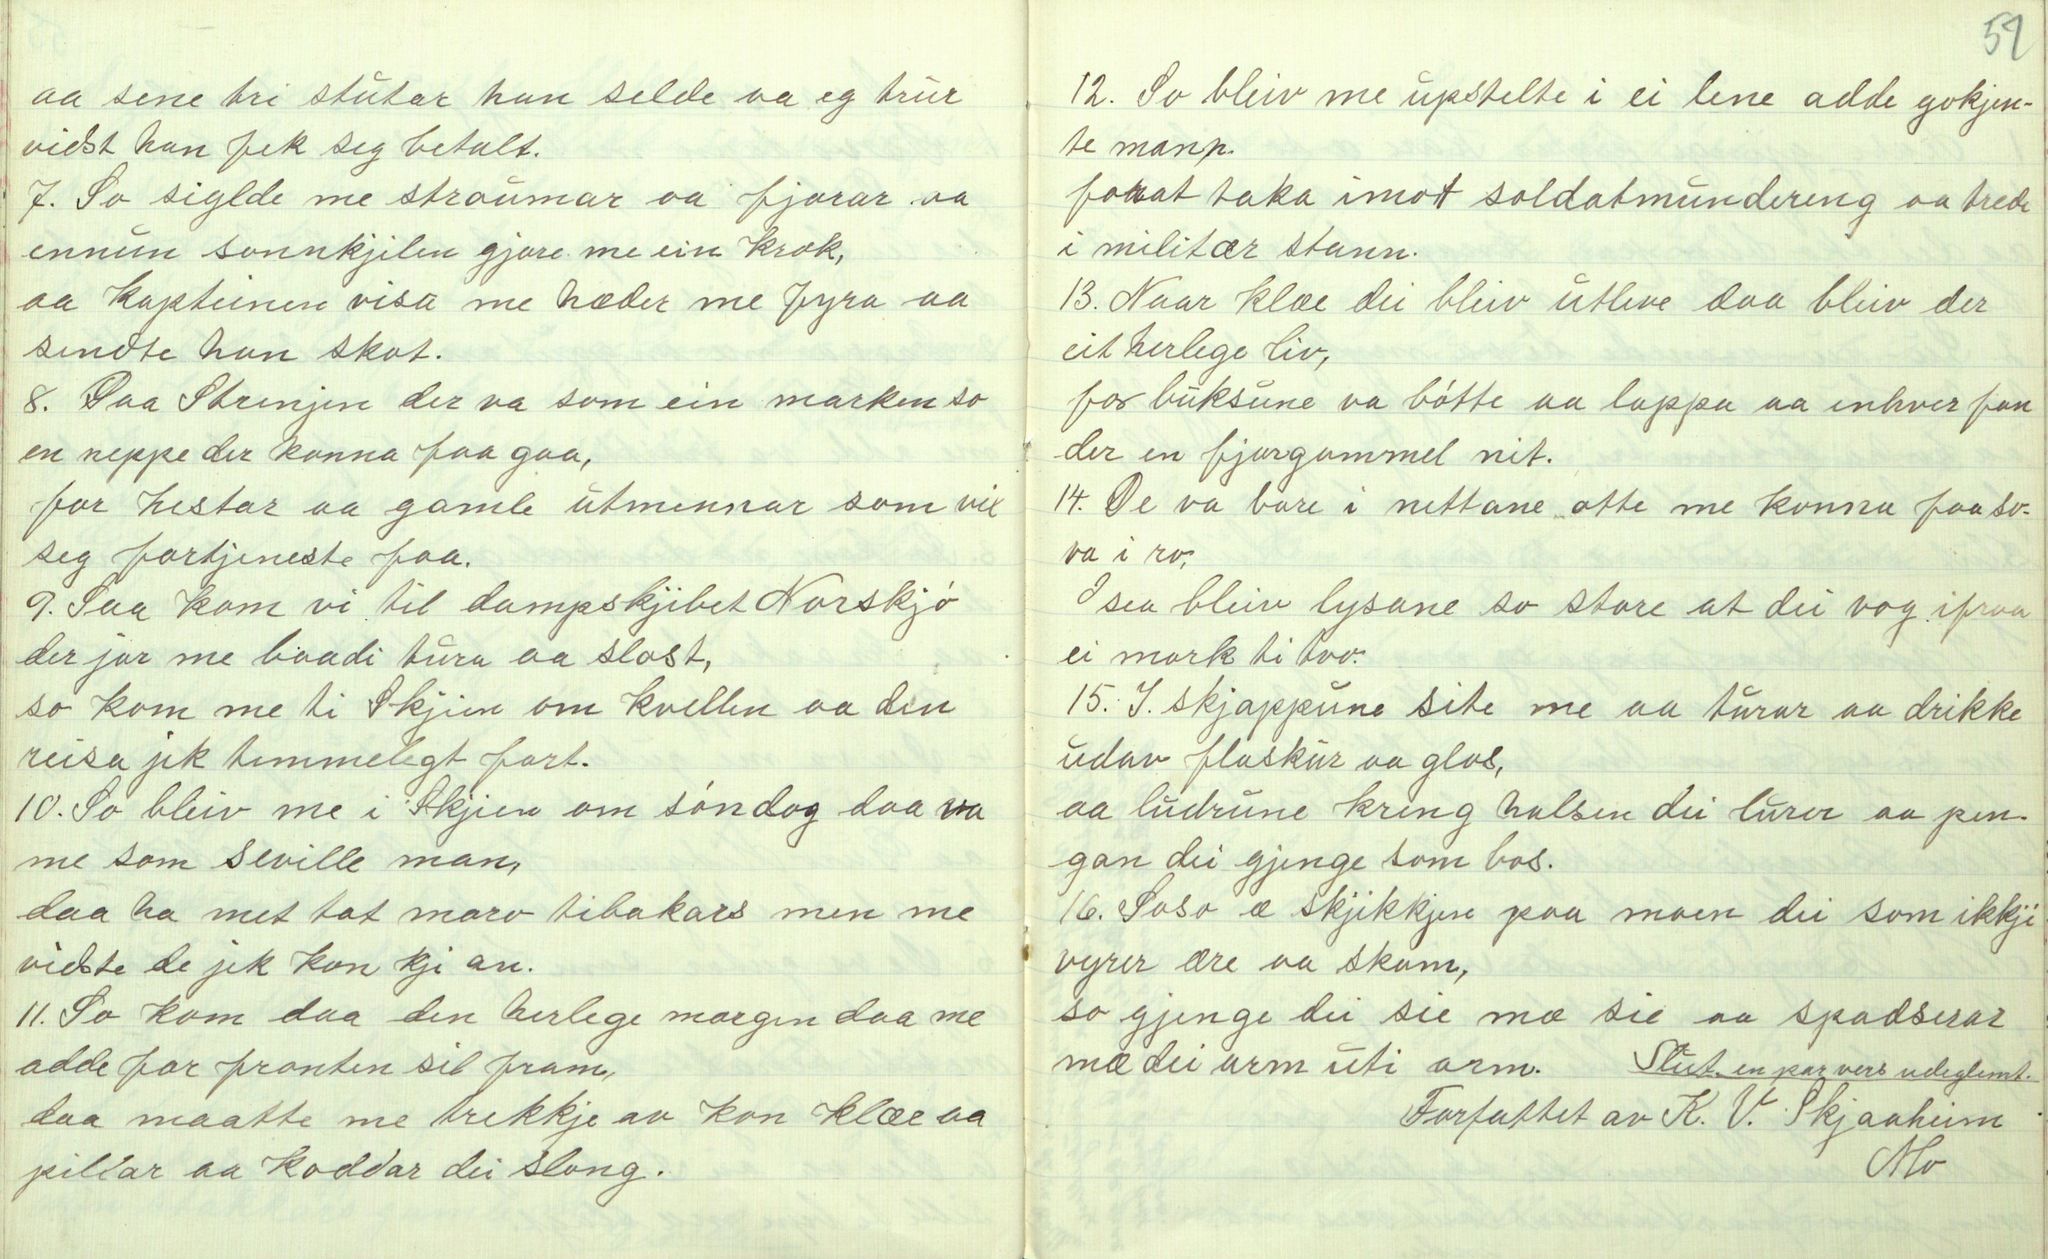 aa sene tri stutar han selde aa eg trur
vidst han fek seg betalt.
7. So siglde me straumar aa fjorar aa
ennun sonnkjilen gjore me ein krok,
aa kapteinen visa me hæder me fyra aa
sendte han skot.
8. Paa Strenjen der va som ein marken so
en neppe der konna faa gaa,
for hestar aa gamle utmennar som vil
seg fortjeneste faa.
9. Saa kom vi til dampskjibet Norskjó
der jor me baadi tura aa slost,
so kom me ti Skjien om kvellen aa den
reisa jik temmelegt fort.
10. So bleiv me i Skjien om sóndog daa va
me som seville man,
daa ha met tat marv tibakars men me
vidste de jik kon kji an.
11. So kom daa den herlege morgen daa me
adde for fronten sil fram,
daa maatte me trekkje av kon klæe aa
pillar aa koddar dei slong.
59
12. So bleiv me upstelte i ei lene adde gokjen-
te mann.
for at taka imot soldatmundereng aa trede
i militær stann.
13. Naar klæe dei bleiv utleve daa bleiv der
eit herlege liv,
for buksune va bótte aa lappa aa enhver fan
der en fjorgammel nit.
14. De va bare i nettane atte me konna faa so-
va i ro,
I sea bleiv lysane so store at dei vog ifraa
ei mork ti tvo.
15. I. skjappune site me aa turar aa drikke
udav flaskur aa glas,
aa ludrune kreng halsen dei lurer aa pen-
gan dei gjenge som bos.
16. Soso æ skjikkjen paa moen dei som ikkji
vyrer ære aa skam,
so gjenge dei sie mæ sie aa spadserar
mæ dei arm uti arm. Slut. en par vers udeglemt.
Forfattet av K. V. Skjaaheim
Mo